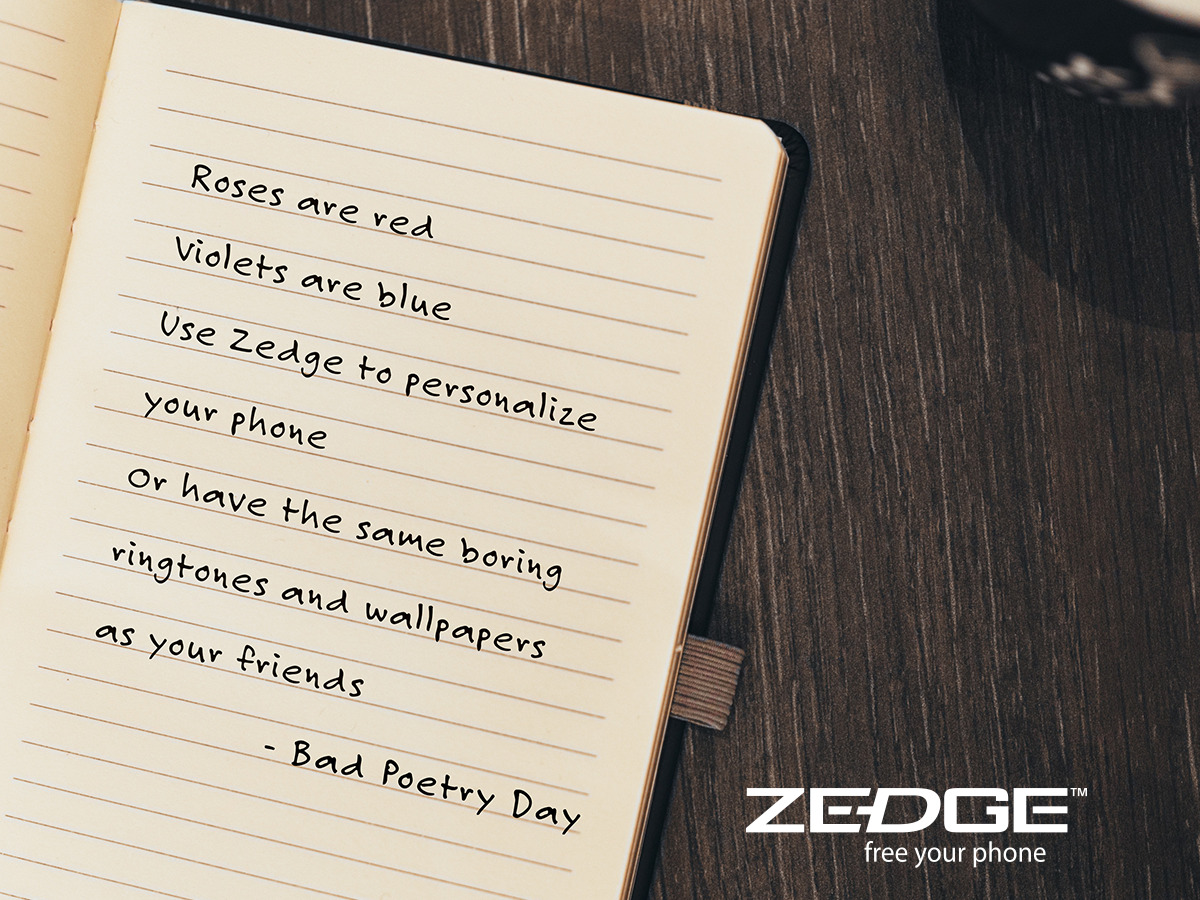 Roses are red
Violets are blue
Use Zedge to personalize
your phone
Or have the same boring
ringtones and wallpapers
as your friends
- Bad Poetry Day
ZEDGE™
free your phone